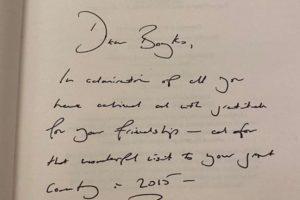 Dear Boyko,
In admiration of all you
have achieved and with gratitude
for your friendship – and for
that wonderful visit to your great
country in 2015 –